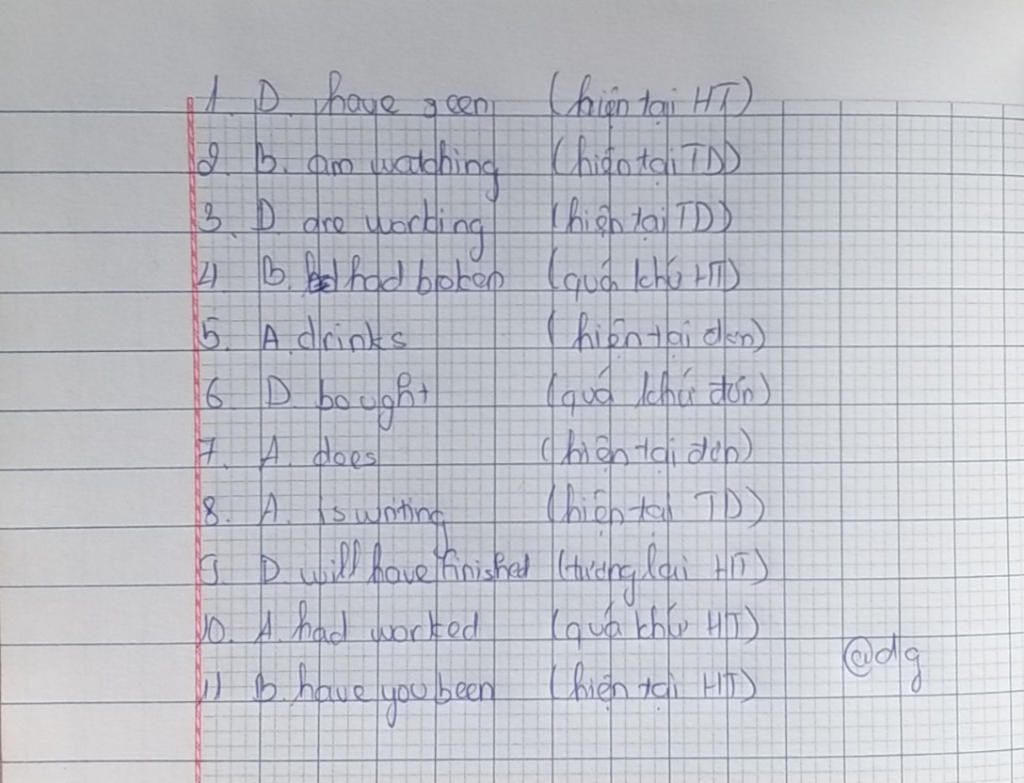 1. D have seen (hiện tại HT)
2. B. am watching (hiện tại TD)
3. D are working (hiện tại TD)
4 B. had broken (quá khứ HT)
5. A. drinks (hiện tại đơn)
6 D. bought (quá khứ đơn)
7. A. does (hiện tại đơn)
8. A. is writing (hiện tại TD)
9. D will have finished (tương lai HT)
10. A. had worked (quá khứ HT)
@dg
11 B. have you been (hiện tại HT)